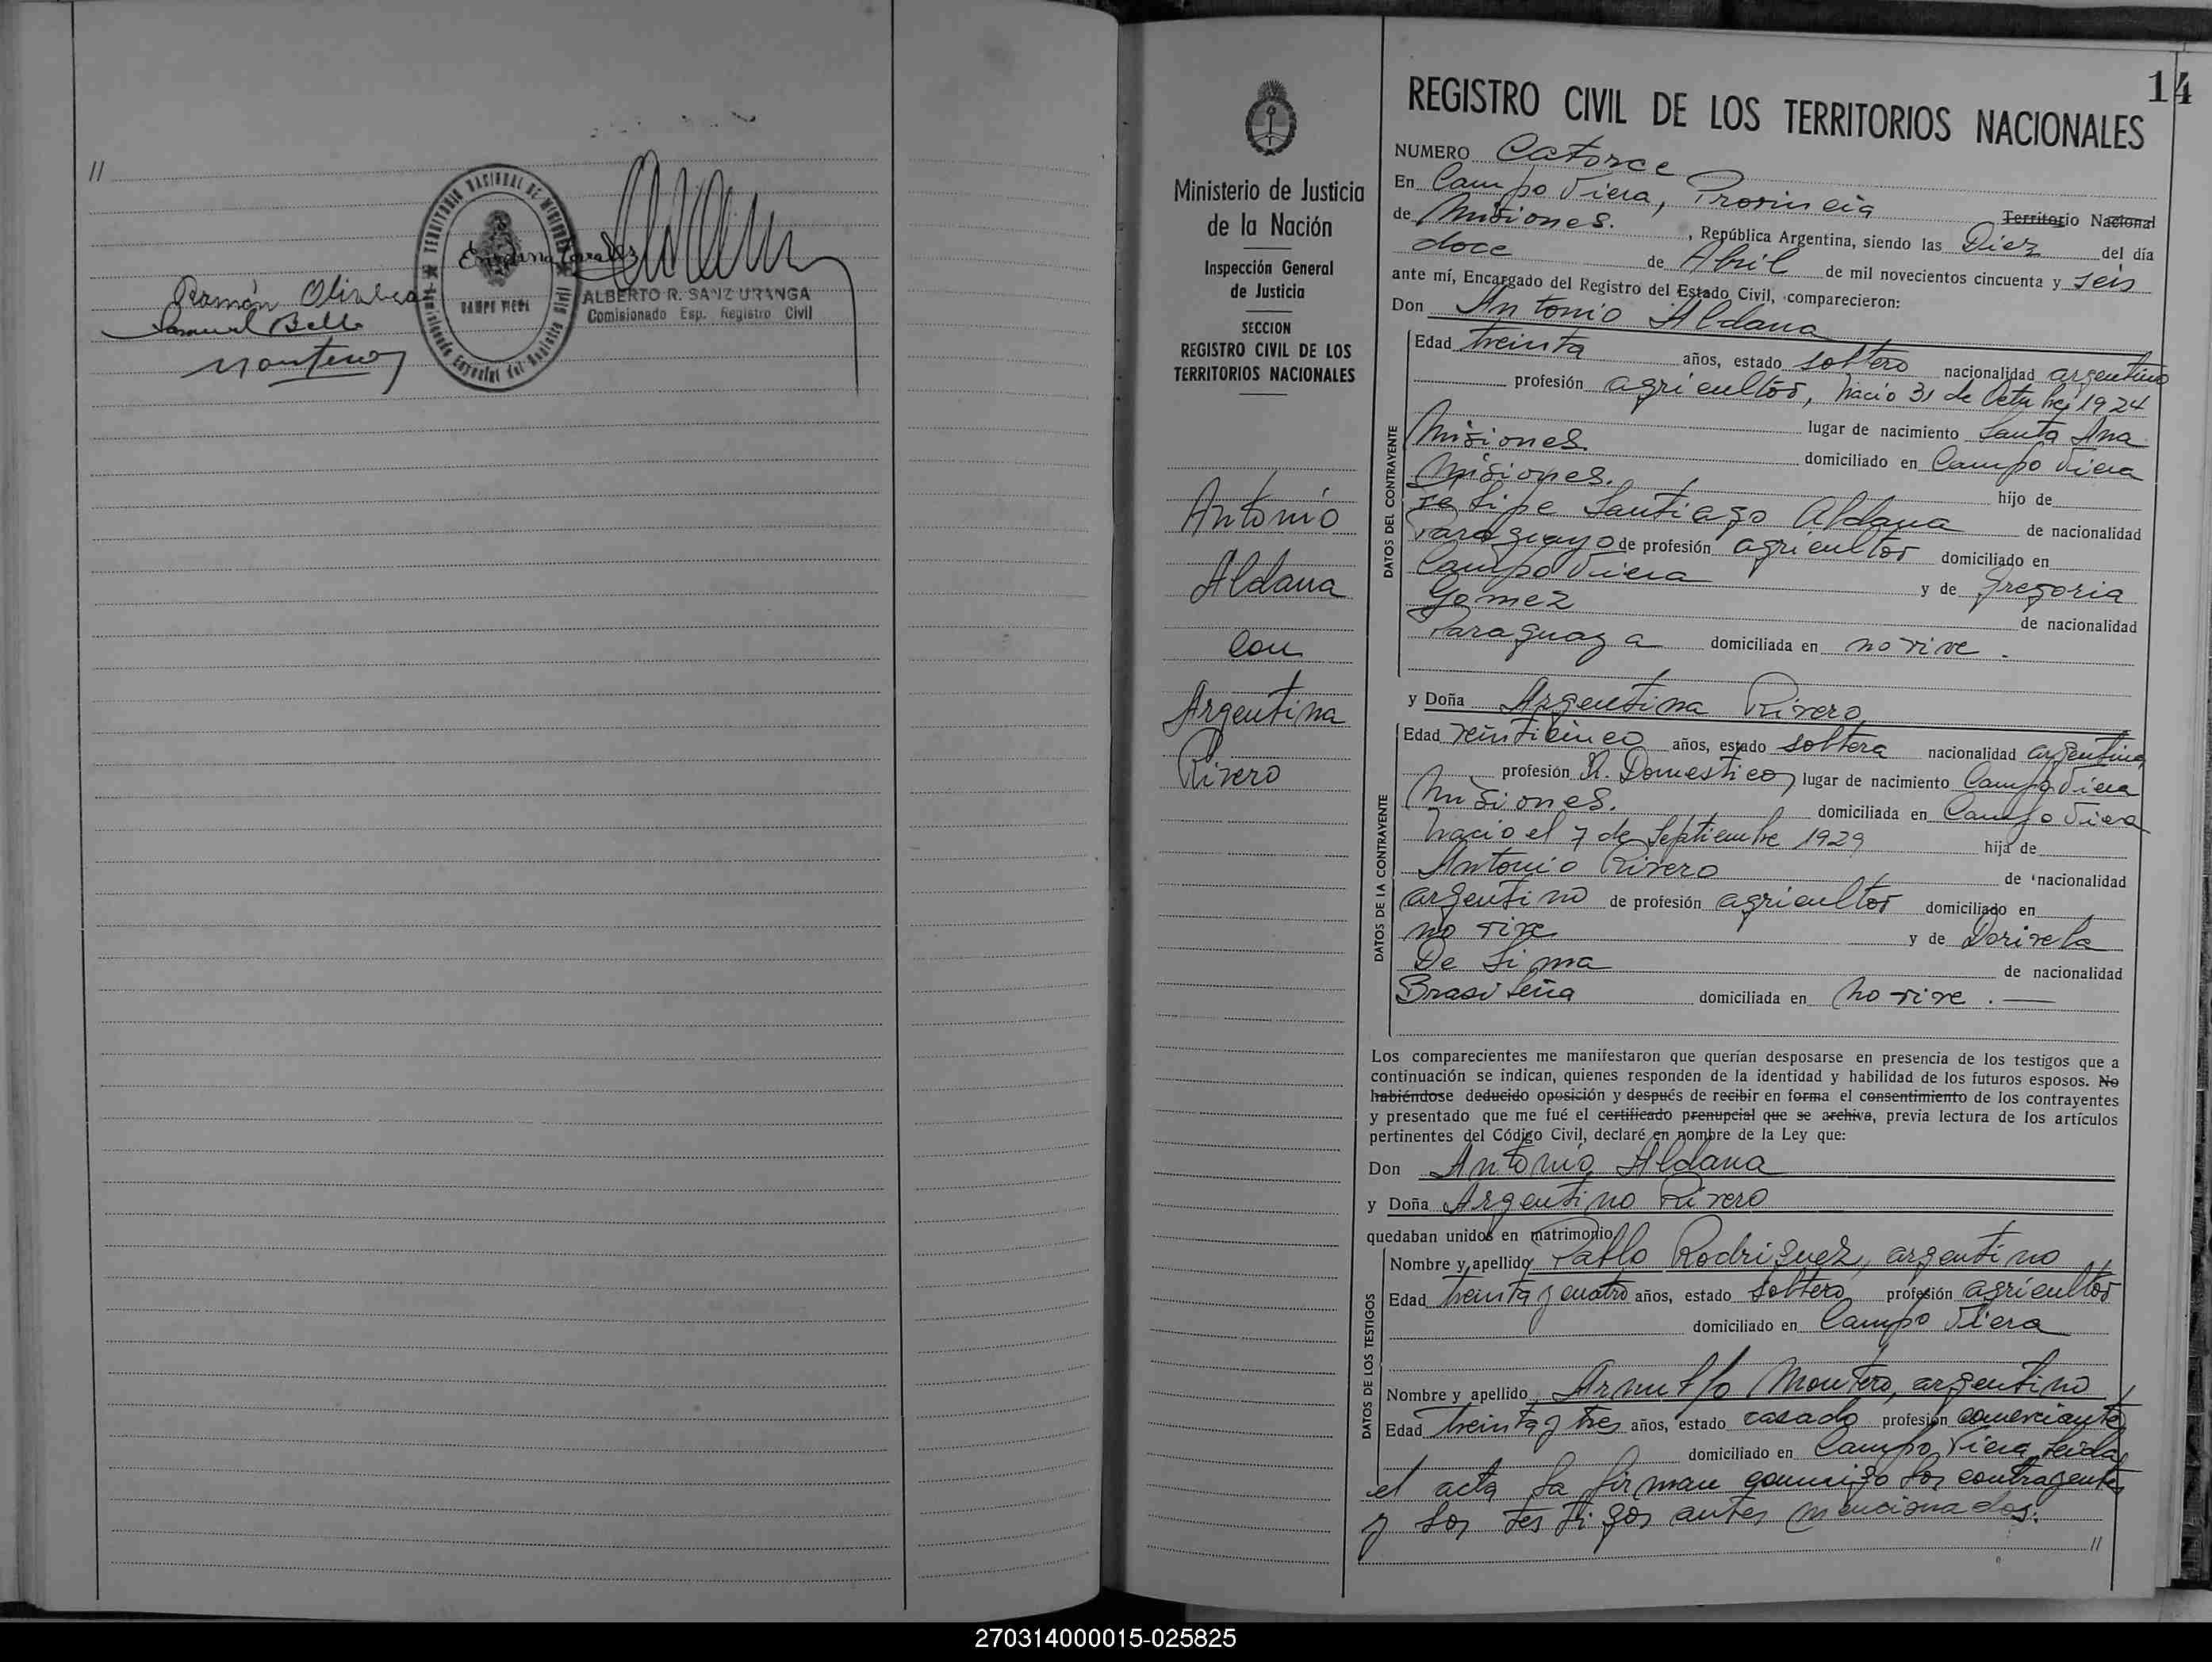 //
TERRITORIO NACIONAL DE MISIONES
CAMPO VIERA
Ramón
Samuel Bello
Montero
ALBERTO R. SANZ URANGA
Comisionado Esp. Registro Civil
14
Ministerio de Justicia
de la Nación
Inspección General
de Justicia
SECCION
REGISTRO CIVIL DE LOS
TERRITORIOS NACIONALES
Antonio
Aldana
con
Argentina
Rivero
REGISTRO CIVIL DE LOS TERRITORIOS NACIONALES
NUMERO Catorce
En Campo Viera, Provincia Territorio Nacional
de Misiones. , República Argentina, siendo las Diez del día
doce de Abril de mil novecientos cincuenta y seis
ante mí, Encargado del Registro del Estado Civil, comparecieron:
Don Antonio Aldana
DATOS DEL CONTRAYENTE
Edad treinta años, estado soltero nacionalidad argentino
profesión agricultor, nacio 31 de Octubre 1924
lugar de nacimiento Santa Ana
Misiones domiciliado en Campo Viera
Misiones. hijo de
Felipe Santiago Aldana de nacionalidad
Paraguayo de profesión agricultor domiciliado en
Campo Viera y de Gregoria
Gomez de nacionalidad
Paraguaya domiciliada en no vive .
y Doña Argentina Rivero
DATOS DE LA CONTRAYENTE
Edad veinticinco años, estado soltera nacionalidad argentina
profesión Q. Domestico, lugar de nacimiento Campo Viera
Misiones. domiciliada en Campo Viera
nacio el 7 de Septiembre 1929 hija de
Antonio Rivero de nacionalidad
argentino de profesión agricultor domiciliado en
no vive y de Dorivela
De Lima de nacionalidad
Brasileña domiciliada en no vive . —
Los comparecientes me manifestaron que querían desposarse en presencia de los testigos que a
continuación se indican, quienes responden de la identidad y habilidad de los futuros esposos. No
habiéndose deducido oposición y después de recibir en forma el consentimiento de los contrayentes
y presentado que me fué el certificado prenupcial que se archiva, previa lectura de los artículos
pertinentes del Código Civil, declaré en nombre de la Ley que:
Don Antonio Aldana
y Doña Argentino Rivero
quedaban unidos en matrimonio
DATOS DE LOS TESTIGOS
Nombre y apellido Pablo Rodriguez, argentino
Edad treinta y cuatro años, estado soltero profesión agricultor
domiciliado en Campo Viera
Nombre y apellido Arnulfo Montero, argentino
Edad treinta y tres años, estado casado profesión comerciante
domiciliado en Campo Viera Leida
el acta la firman conmigo los contrayentes
y los testigos antes mencionados.
//
270314000015-025825